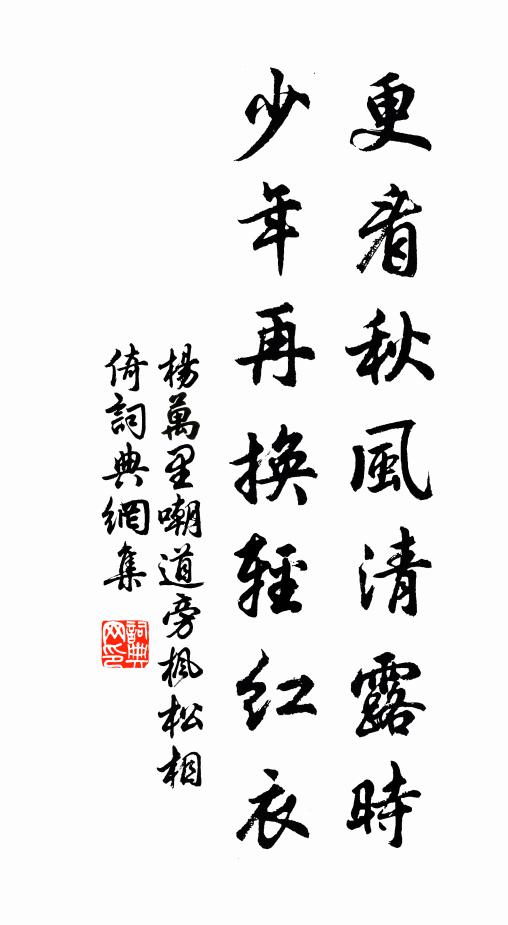 更看秋風清露時
少年再換輕紅衣
楊萬里嘲道旁楓松相
倚詞典網集
詞典
网印